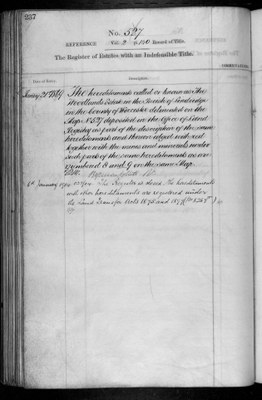 237
No. 527
REFERENCE Vol. 2 Record of Title.
The Register of Estates with an Indefeasible Title.
Date of Entry. Description.
January 21st The hereditaments called or known as The
Woodlands Estate in the Parish of
in the County of Worcester delineated on the
Map No 527 deposited in the Office of Land
Registry as part of the description of the same
hereditaments and thereon edged with red
together with the mines and minerals under
such part of the same hereditaments as are
numbered 8 and 9 on the same Map.
January The Register is closed. The hereditaments
and other hereditaments are registered under
the Land Transfer Acts 1875 and 1897